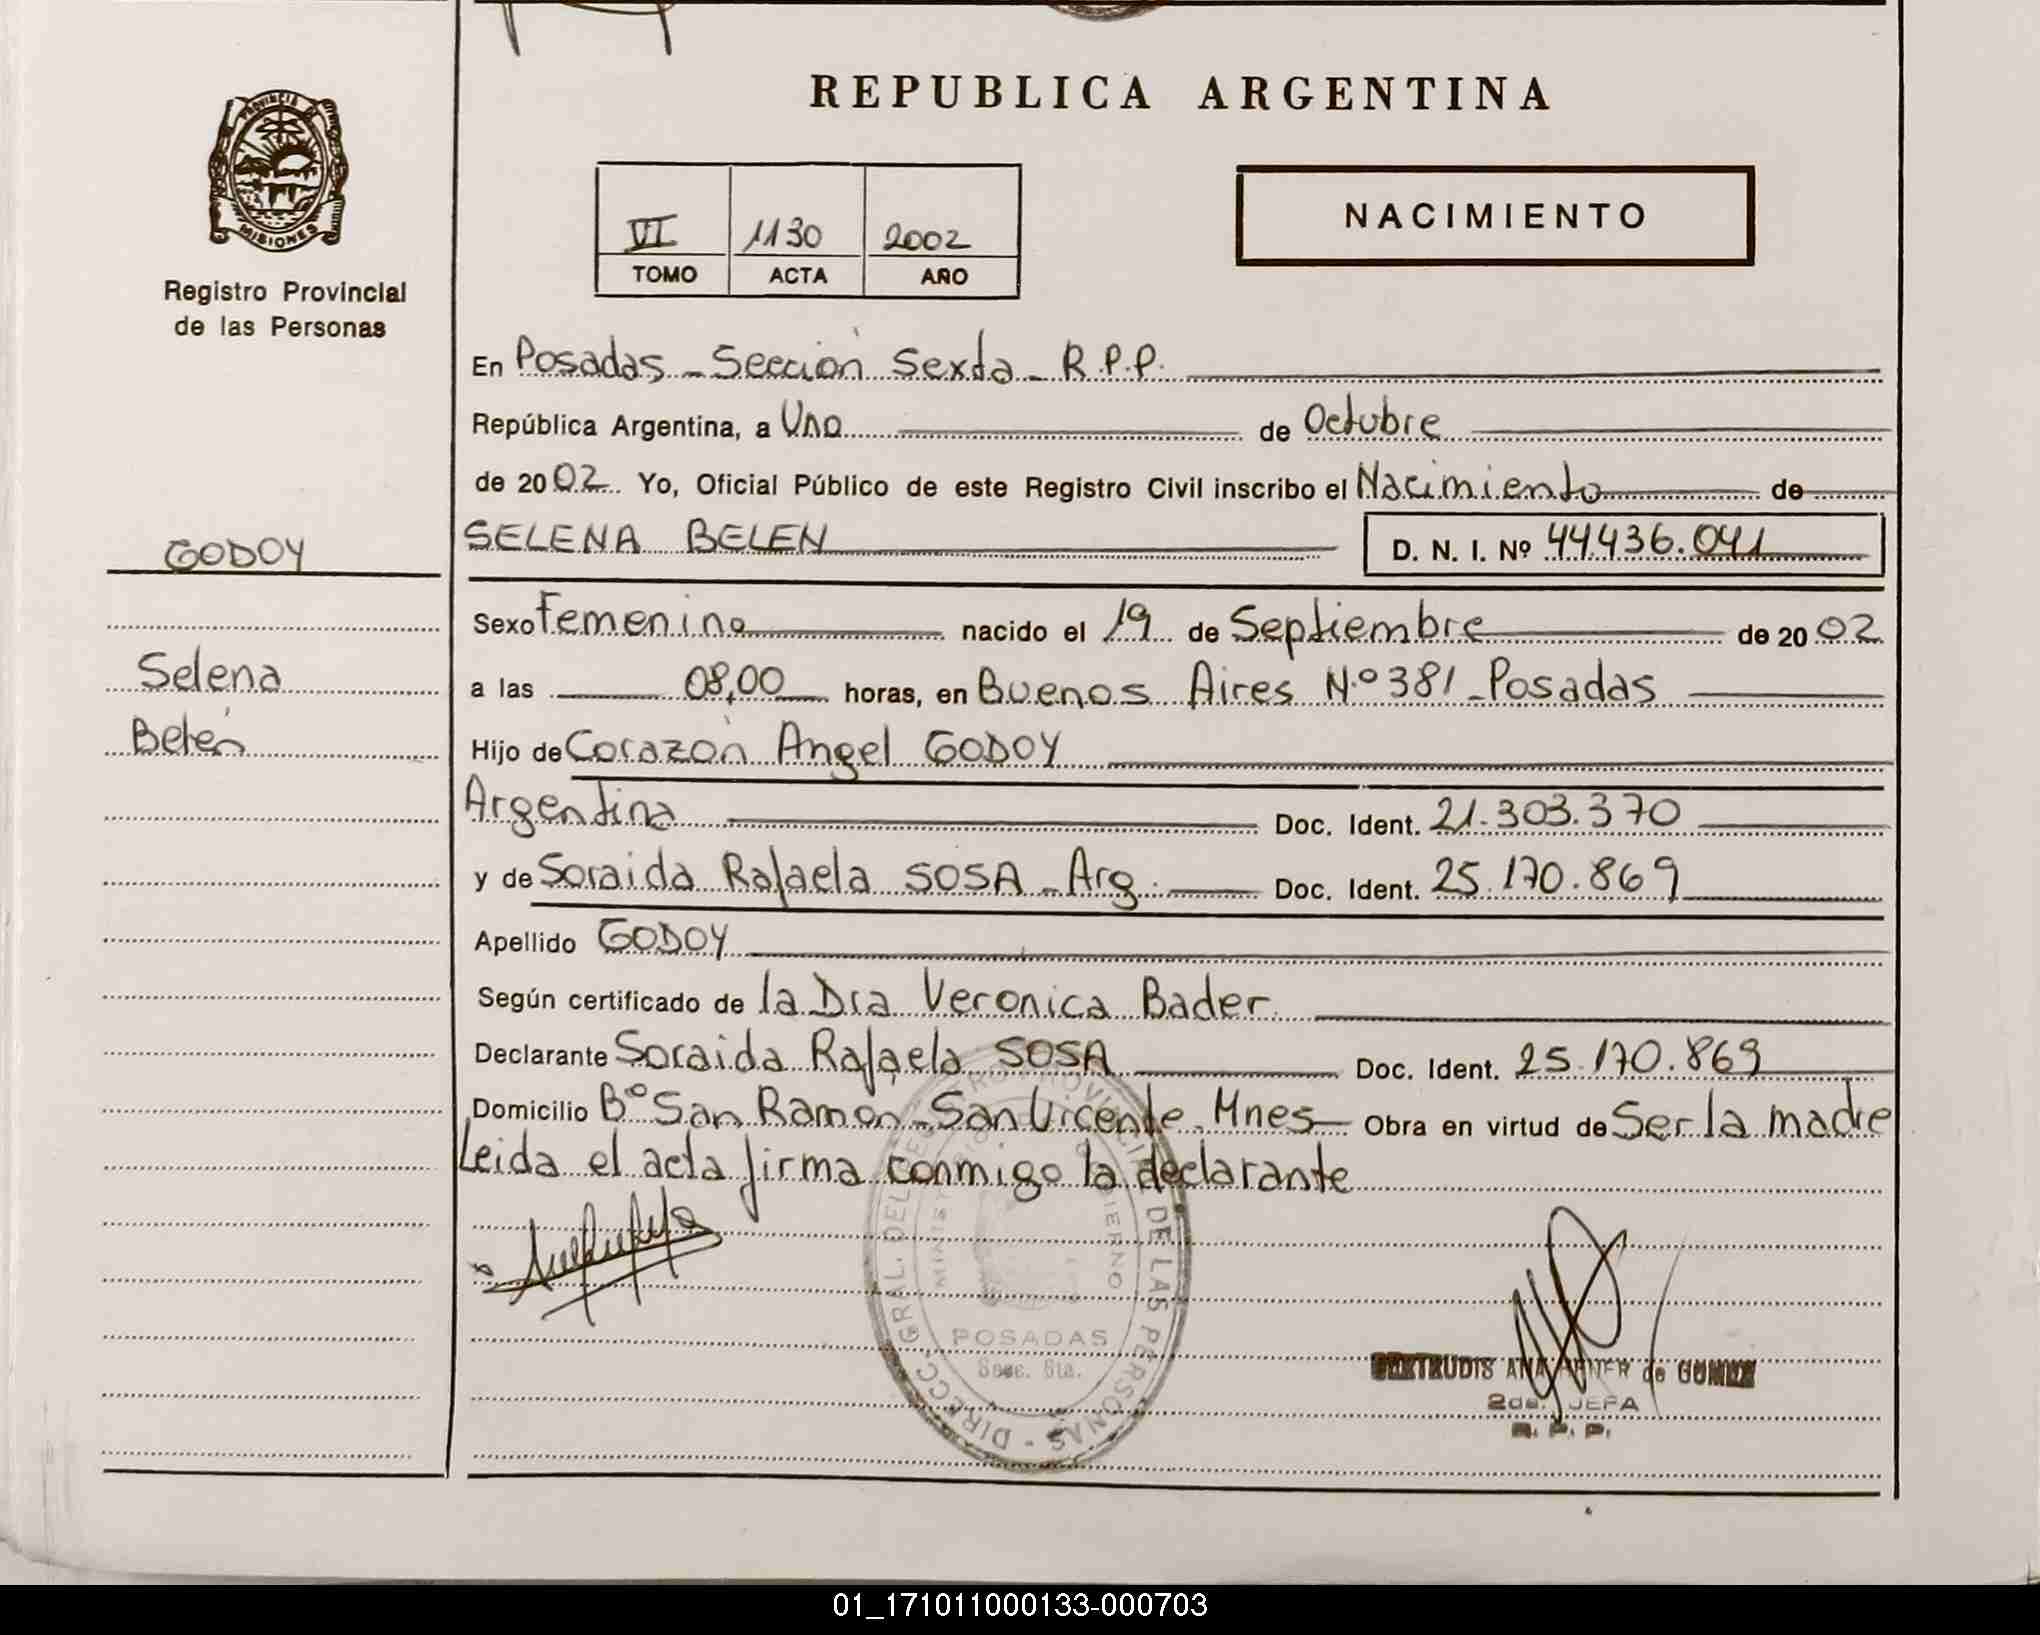 REPUBLICA ARGENTINA
PROVINCIA DE
MISIONES
Registro Provincial
de las Personas
VI 1130 2002
TOMO ACTA AÑO
NACIMIENTO
En Posadas - Sección Sexta - R.P.P.
República Argentina, a Uno de Octubre
de 2002 Yo, Oficial Público de este Registro Civil inscribo el Nacimiento de
GODOY
SELENA BELEN D. N. I. Nº 44.436.041
Sexo Femenino nacido el 19 de Septiembre de 2002
Selena
a las 08,00 horas, en Buenos Aires N.º 381 - Posadas
Belén
Hijo de Corazón Angel GODOY
Argentina Doc. Ident. 21.303.370
y de Soraida Rafaela SOSA - Arg. Doc. Ident. 25.170.869
Apellido GODOY
Según certificado de la Dra Veronica Bader
Declarante Soraida Rafaela SOSA Doc. Ident. 25.170.869
Domicilio Bº San Ramon - San Vicente - Mnes Obra en virtud de Ser la madre
Leida el acta firma conmigo la declarante
DIRECC. GRAL. DEL REGISTRO PROVINCIAL DE LAS PERSONAS
POSADAS
Secc. 6ta.
GERTRUDIS ANA de
2da. JEFA
R. P. P.
01_171011000133-000703